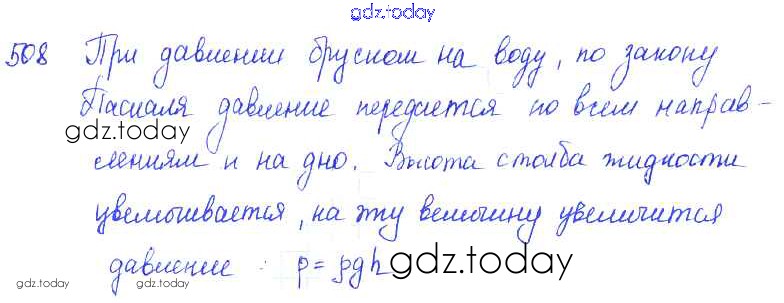 gdz.today
508 При давлении бруском на воду, по закону
Паскаля давление передается по всем направ-
gdz.today
лениям и на дно. Высота столба жидкости
увеличивается, на эту величину увеличится
давление : p = ρgh
gdz.today
gdz.today
gdz.today